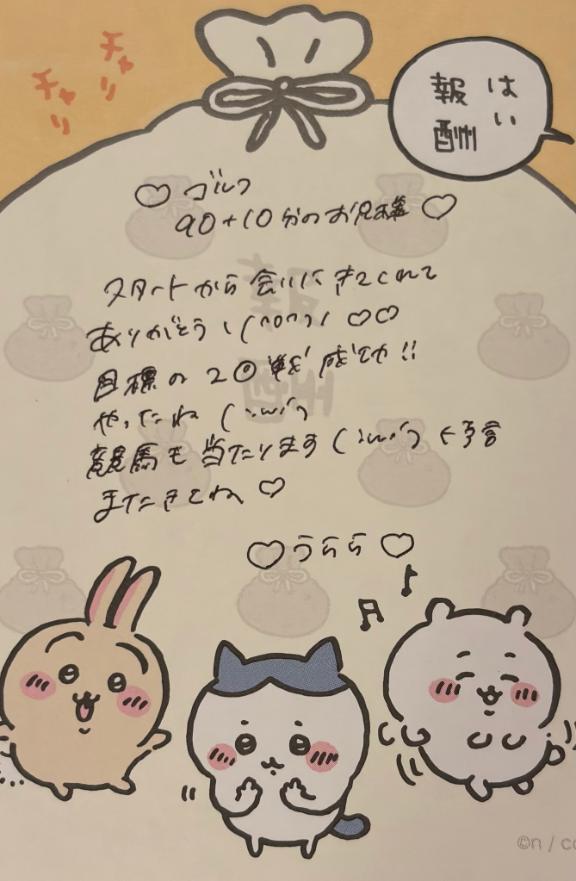 チャリ
チャリ
はい
報酬
♡ ゴルフ
90+10分のお兄様 ♡
スタートから会いにきてくれて
ありがとう \(^o^)/ ♡♡
目標の20戦成功!!
やったね (´;ω;`)
競馬も当たります (´;ω;`) ←予言
またきてね ♡
♡ うらら ♡
報酬
©n / c